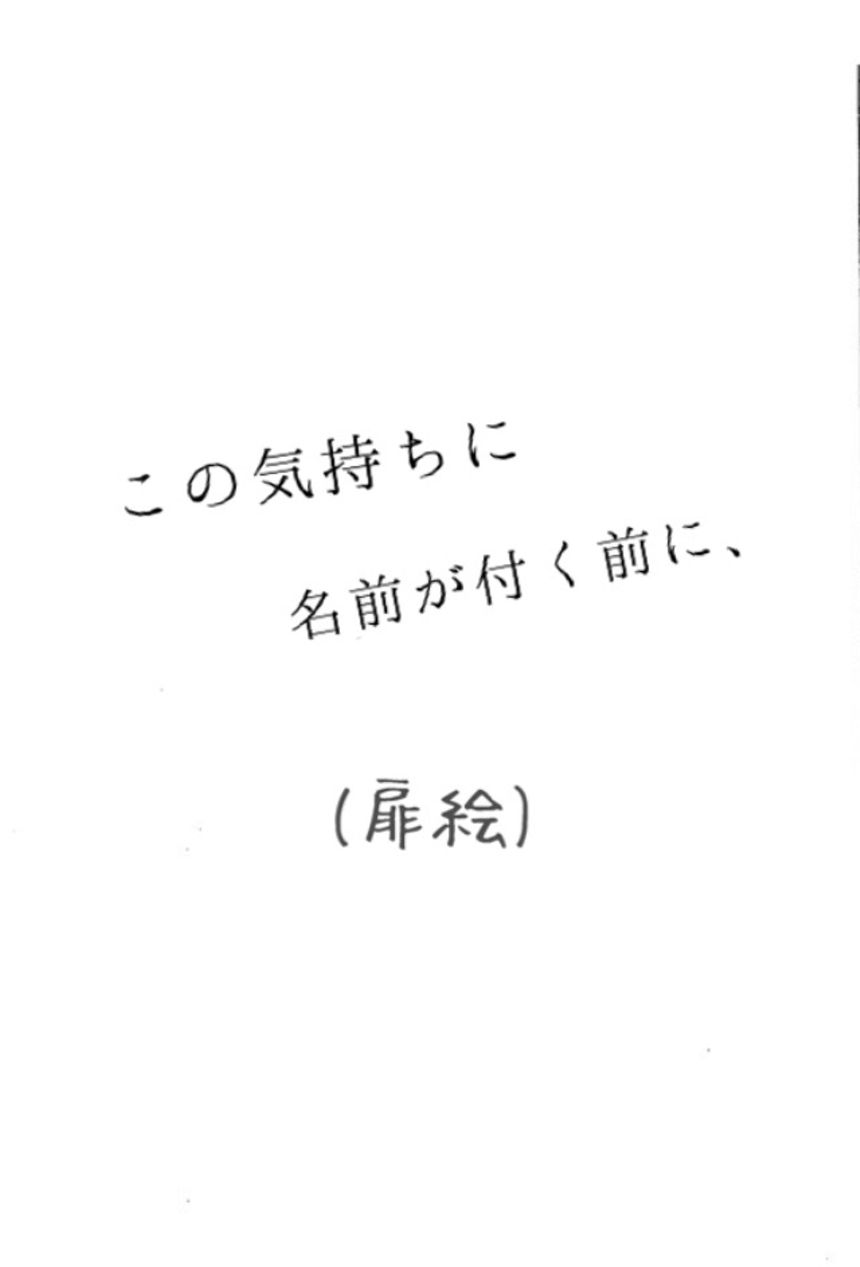 この気持ちに
名前が付く前に、
(扉絵)